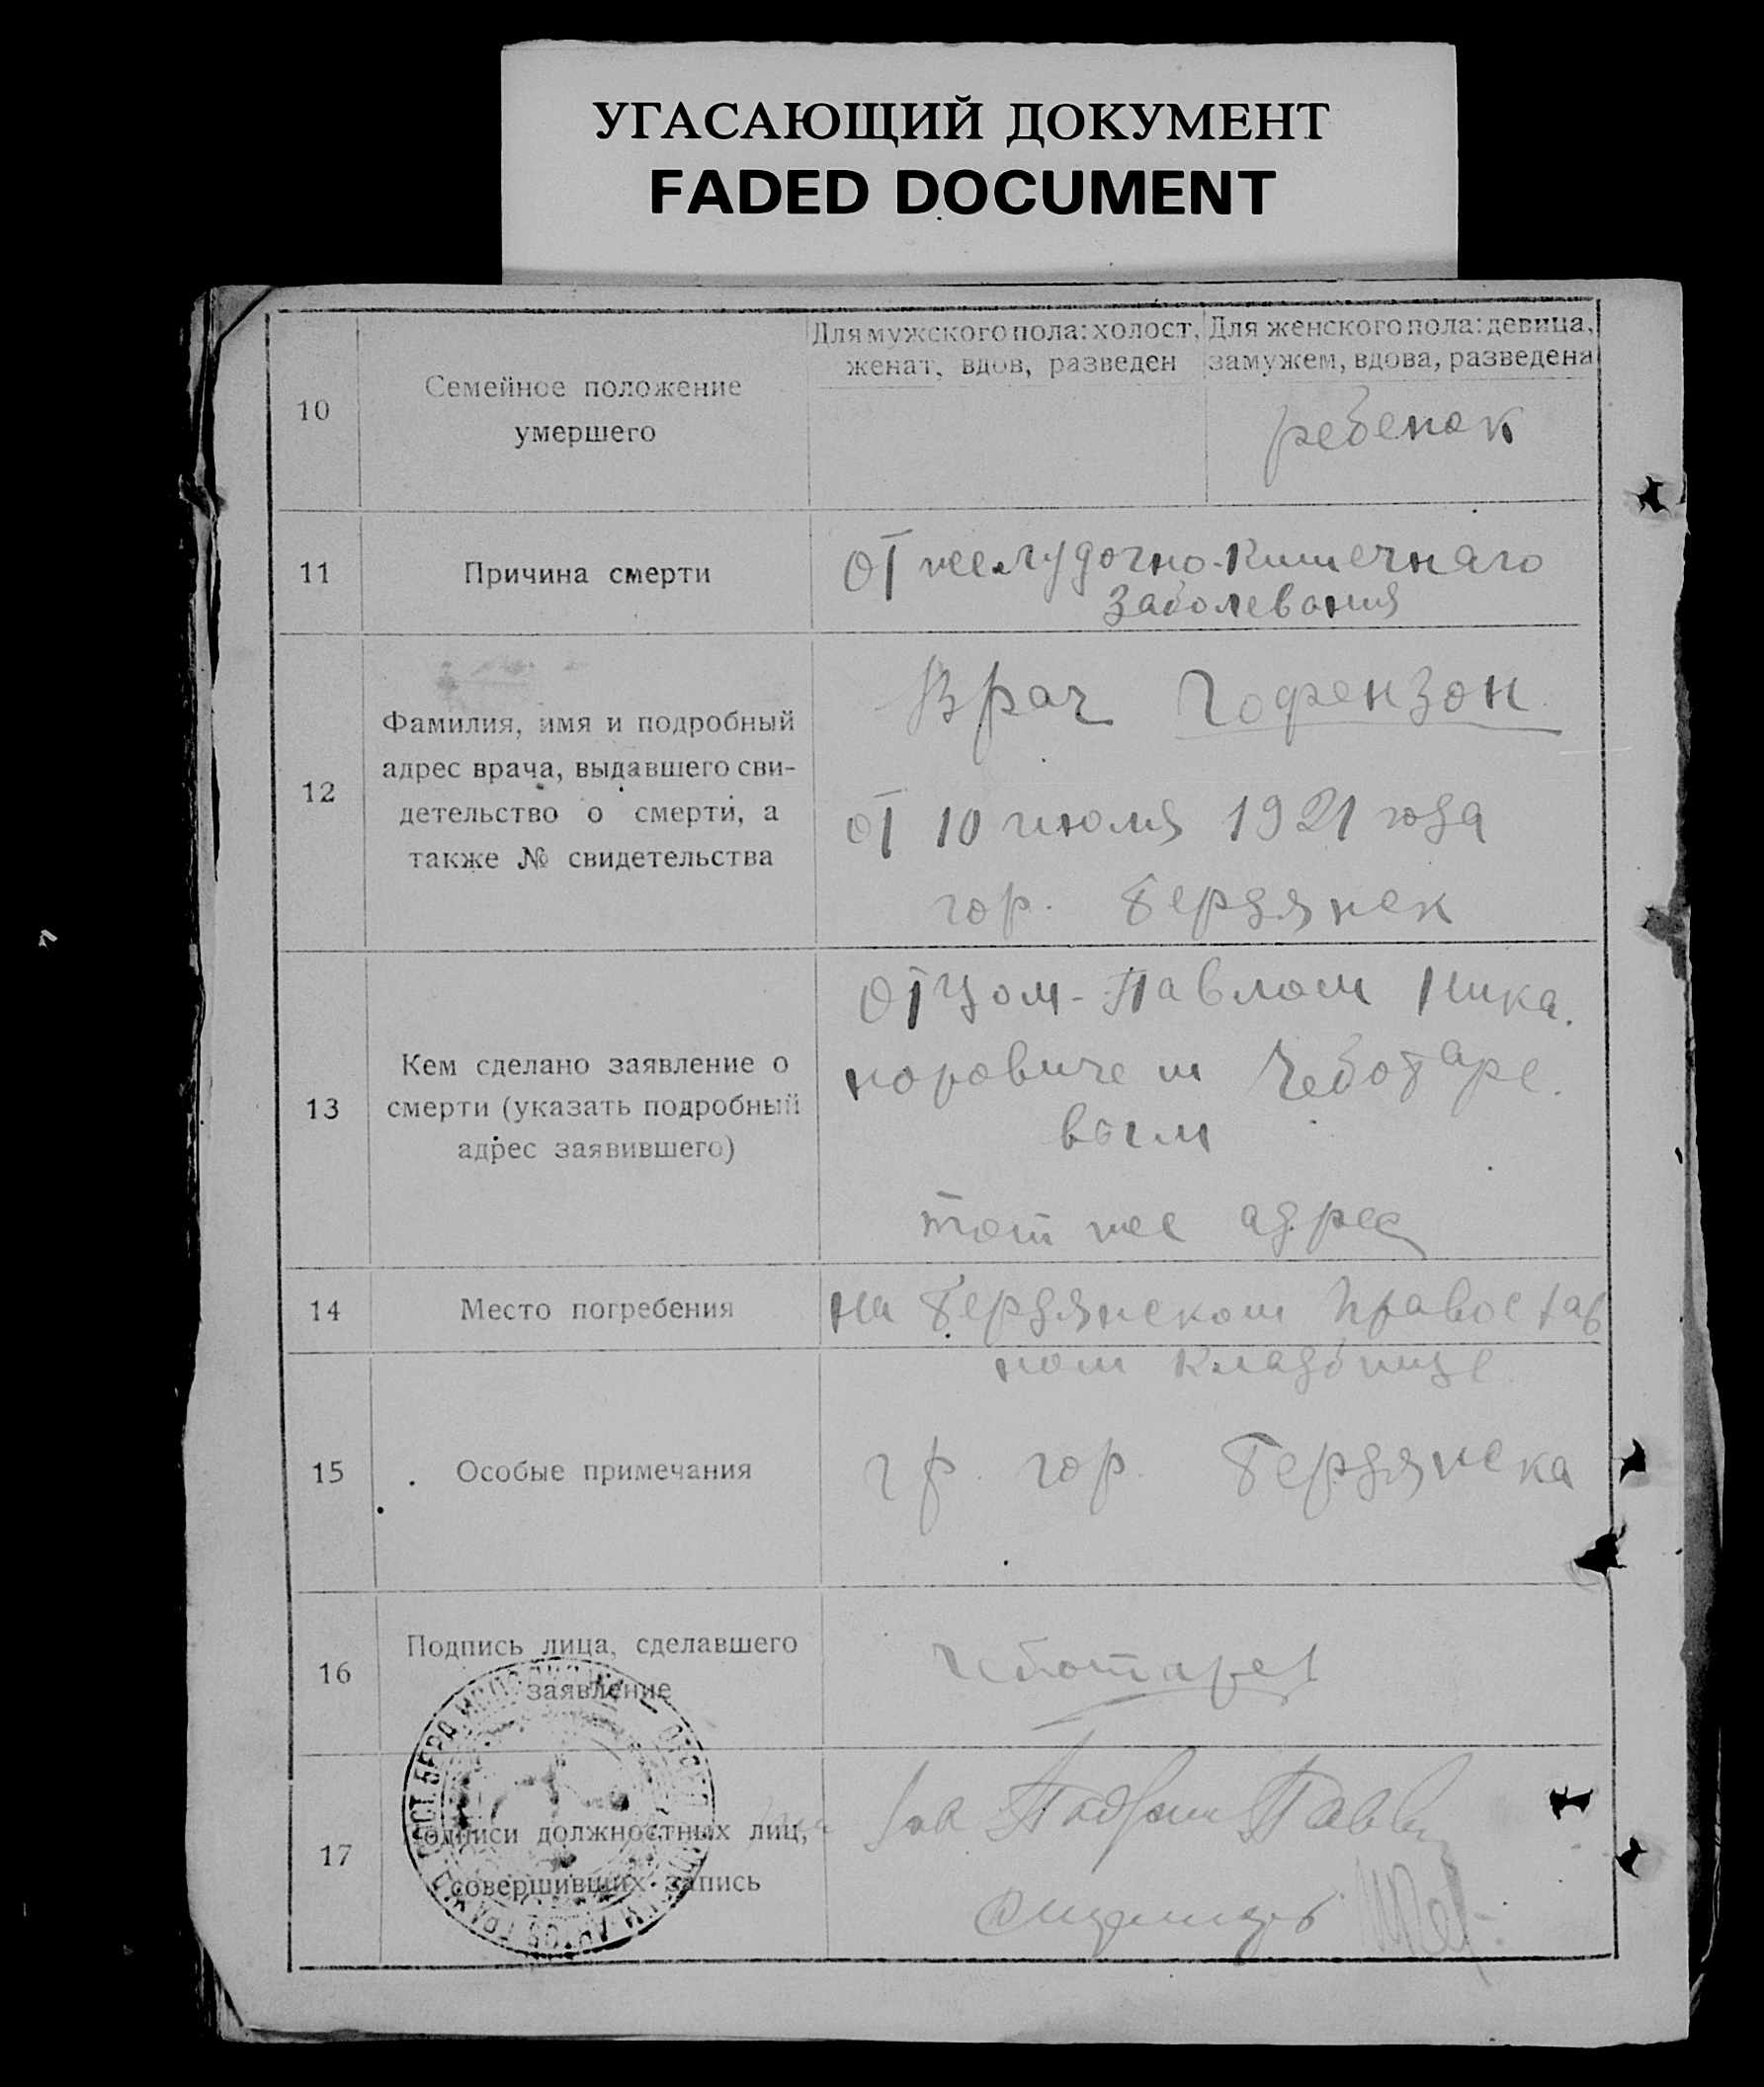 УГАСАЮЩИЙ ДОКУМЕНТ
FADED DOCUMENT
10
Семейное положение
умершего
Для мужского пола: холост,
женат, вдов, разведен
Для женского пола: девица,
замужем, вдова, разведена
ребенок
11
Причина смерти
От желудочно-кишечнаго
заболевания
12
Фамилия, имя и подробный
адрес врача, выдавшего сви-
детельство о смерти, а
также № свидетельства
Врач Гофензон
от 10 июля 1921 года
гор. Бердянск
13
Кем сделано заявление о
смерти (указать подробный
адрес заявившего)
Отцом - Павлом Ника.
норовичем Чеботаре.
вым
тот же адрес
14
Место погребения
на Бердянском Православ
ном кладбище
15
Особые примечания
гр. гор. Бердянска
16
Подпись лица, сделавшего
заявление
Чеботарев
17
Подписи должностных лиц,
совершивших запись